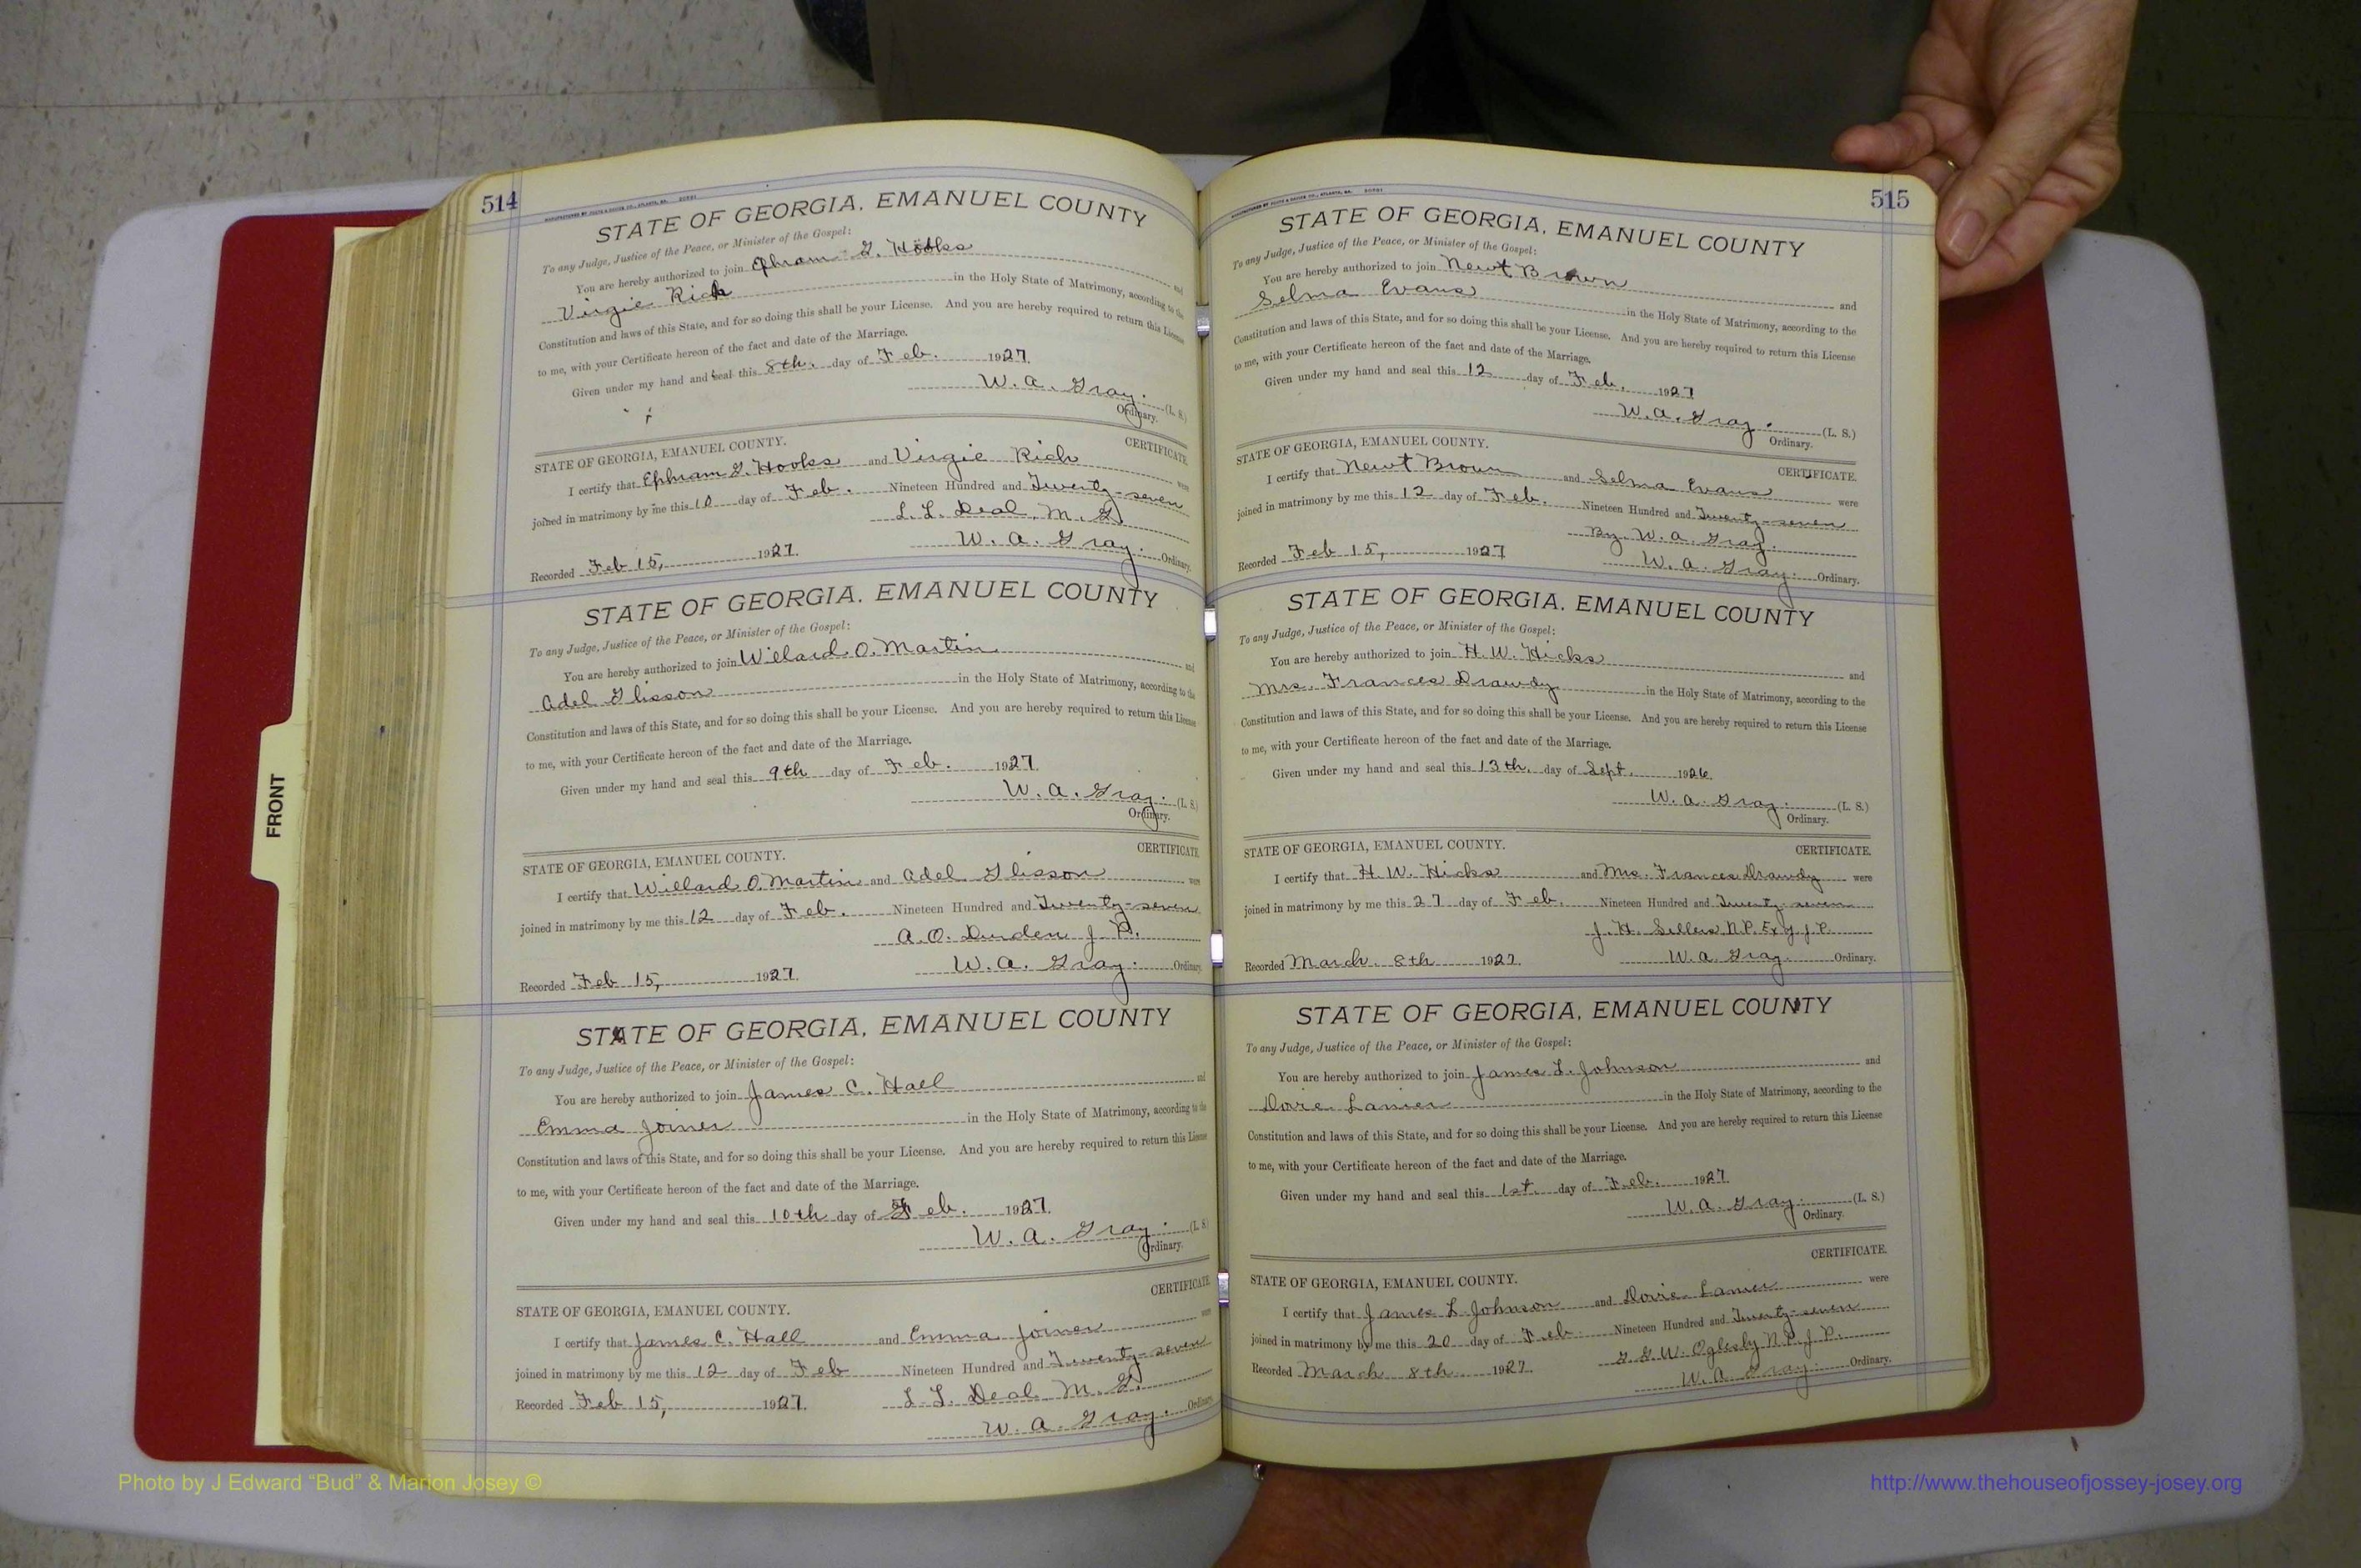 514
STATE OF GEORGIA, EMANUEL COUNTY
To any Judge, Justice of the Peace, or Minister of the Gospel:
You are hereby authorized to join Ephram G. Hooks and
Virgie Rich in the Holy State of Matrimony, according to the
Constitution and laws of this State, and for so doing this shall be your License. And you are hereby required to return this License
to me, with your Certificate hereon of the fact and date of the Marriage.
Given under my hand and seal this 8th. day of Feb. 1927
W. A. Gray. (L. S.)
Ordinary.
CERTIFICATE.
STATE OF GEORGIA, EMANUEL COUNTY.
I certify that Ephram G. Hooks and Virgie Rich were
joined in matrimony by me this 10 day of Feb. Nineteen Hundred and Twenty-seven
L. L. Deal, M. G.
Recorded Feb 15, 1927. W. A. Gray. Ordinary.
STATE OF GEORGIA, EMANUEL COUNTY
To any Judge, Justice of the Peace, or Minister of the Gospel:
You are hereby authorized to join Willard O. Martin and
Adel Glisson in the Holy State of Matrimony, according to the
Constitution and laws of this State, and for so doing this shall be your License. And you are hereby required to return this License
to me, with your Certificate hereon of the fact and date of the Marriage.
Given under my hand and seal this 9th day of Feb. 1927.
W. A. Gray. (L. S.)
Ordinary.
CERTIFICATE.
STATE OF GEORGIA, EMANUEL COUNTY.
I certify that Willard O. Martin and Adel Glisson were
joined in matrimony by me this 12 day of Feb. Nineteen Hundred and Twenty-seven
A. O. Durden J. P.
Recorded Feb 15, 1927. W. A. Gray. Ordinary.
STATE OF GEORGIA, EMANUEL COUNTY
To any Judge, Justice of the Peace, or Minister of the Gospel:
You are hereby authorized to join James C. Hall and
Emma Joiner in the Holy State of Matrimony, according to the
Constitution and laws of this State, and for so doing this shall be your License. And you are hereby required to return this License
to me, with your Certificate hereon of the fact and date of the Marriage.
Given under my hand and seal this 10th day of Feb. 1927.
W. A. Gray. (L. S.)
Ordinary.
CERTIFICATE.
STATE OF GEORGIA, EMANUEL COUNTY.
I certify that James C. Hall and Emma Joiner were
joined in matrimony by me this 12 day of Feb Nineteen Hundred and Twenty-seven
Recorded Feb 15, 1927. L. L. Deal M. G.
W. A. Gray. Ordinary.
515
STATE OF GEORGIA, EMANUEL COUNTY
To any Judge, Justice of the Peace, or Minister of the Gospel:
You are hereby authorized to join Newt Brown and
Selma Evans in the Holy State of Matrimony, according to the
Constitution and laws of this State, and for so doing this shall be your License. And you are hereby required to return this License
to me, with your Certificate hereon of the fact and date of the Marriage.
Given under my hand and seal this 12 day of Feb. 1927
W. A. Gray. (L. S.)
Ordinary.
STATE OF GEORGIA, EMANUEL COUNTY. CERTIFICATE.
I certify that Newt Brown and Selma Evans were
joined in matrimony by me this 12 day of Feb. Nineteen Hundred and Twenty-seven
By. W. A. Gray.
Recorded Feb 15, 1927 W. A. Gray. Ordinary.
STATE OF GEORGIA, EMANUEL COUNTY
To any Judge, Justice of the Peace, or Minister of the Gospel:
You are hereby authorized to join H. W. Hicks and
Mrs. Frances Drawdy in the Holy State of Matrimony, according to the
Constitution and laws of this State, and for so doing this shall be your License. And you are hereby required to return this License
to me, with your Certificate hereon of the fact and date of the Marriage.
Given under my hand and seal this 13th. day of Sept. 1926.
W. A. Gray. (L. S.)
Ordinary.
STATE OF GEORGIA, EMANUEL COUNTY. CERTIFICATE.
I certify that H. W. Hicks and Mrs. Frances Drawdy were
joined in matrimony by me this 27 day of Feb. Nineteen Hundred and Twenty-seven
J. H. Sellers, N. P. Ex of J. P.
Recorded March. 8th 1927. W. A. Gray. Ordinary.
STATE OF GEORGIA, EMANUEL COUNTY
To any Judge, Justice of the Peace, or Minister of the Gospel:
You are hereby authorized to join James L. Johnson and
Dovie Lanier in the Holy State of Matrimony, according to the
Constitution and laws of this State, and for so doing this shall be your License. And you are hereby required to return this License
to me, with your Certificate hereon of the fact and date of the Marriage.
Given under my hand and seal this 1st. day of Feb. 1927
W. A. Gray. (L. S.)
Ordinary.
CERTIFICATE.
STATE OF GEORGIA, EMANUEL COUNTY.
I certify that James L. Johnson and Dovie Lanier were
joined in matrimony by me this 20 day of Feb. Nineteen Hundred and Twenty-seven
G. W. Oglesby N. P. J. P.
Recorded March 8th. 1927. W. A. Gray. Ordinary.
FRONT
Photo by J Edward “Bud” & Marion Josey ©
http://www.thehouseofjossey-josey.org